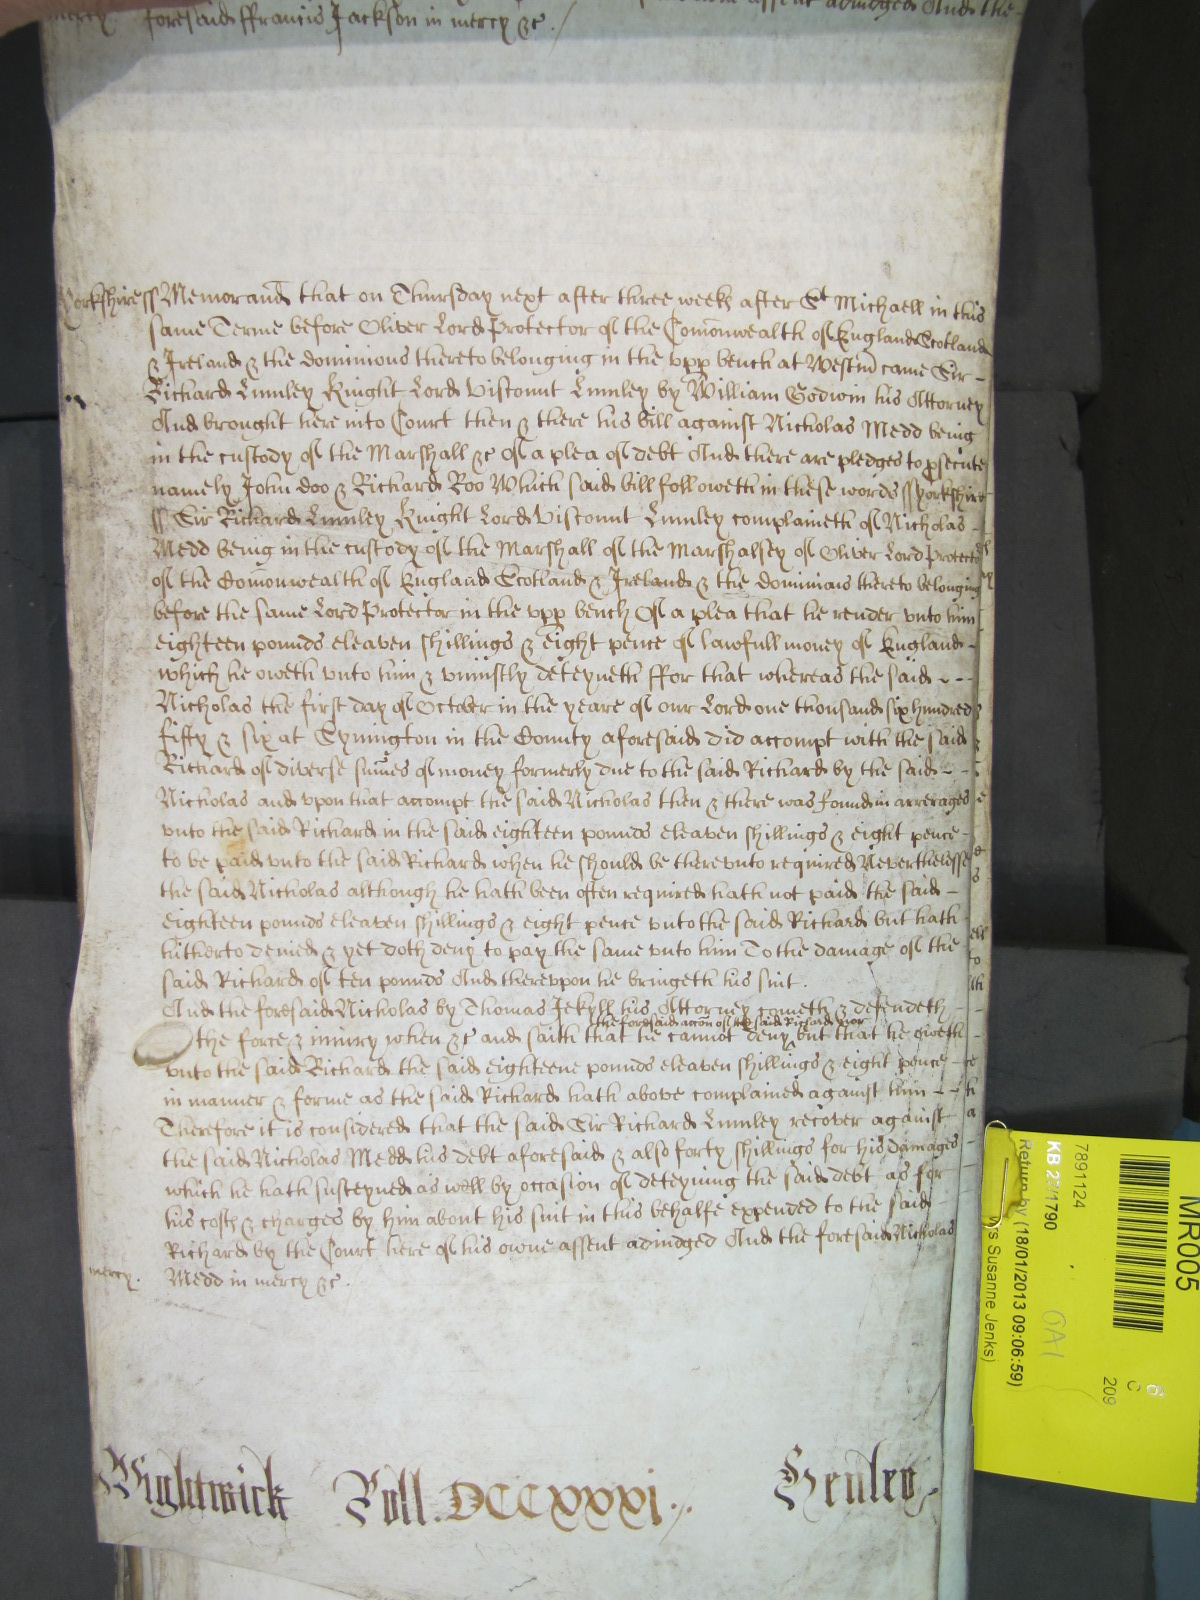 mercy foresaid ffrancis Jackson in mercy &c ./ assent adiudged And the
Yorkshire ss Memorand that on Thursday next after three weeks after St Michaell in this
same Terme before Oliver Lord Protector of the Comonwealth of England Scotland
& Ireland & the dominions thereto belonging in the vpp bench at Westm came Sir -
Richard Lumley Knight Lord Viscount Lumley by William Godwin his Attorney
And brought here into Court then & there his bill against Nicholas Medd being
in the custody of the Marshall &c Of a plea of debt And there are pledges to psecute
namely John Doo & Richard Roo Which said bill followeth in these words ss Yorkshire
ss Sir Richard Lumley Knight Lord Viscount Lumley complaineth of Nicholas -
Medd being in the custody of the Marshall of the Marshalsey of Oliver Lord Protector
of the Comonwealth of England Scotland & Ireland & the dominions thereto belonging
before the same Lord Protector in the vpp bench Of a plea that he render vnto him
eighteen pounds eleaven shillings & eight pence of lawfull money of England -
which he oweth vnto him & vniustly deteyneth ffor that whereas the said - - -
Nicholas the first day of October in the yeare of our Lord one thousand six hundred
fifty & six at Symington in the County aforesaid did accompt with the said
Richard of diverse sumes of money formerly due to the said Richard by the said - -
Nicholas and vpon that accompt the said Nicholas then & there was found in arrerages
vnto the said Richard in the said eighteen pounds eleaven shillings & eight pence -
to be paid vnto the said Richard when he should be therevnto required Neverthelesse
the said Nicholas although he hath been often required hath not paid the said -
eighteen pounds eleaven shillings & eight pence vnto the said Richard but hath
hitherto denied & yet doth deny to pay the same vnto him To the damage of the
said Richard of ten pounds And therevpon he bringeth his suit .
And the foresaid Nicholas by Thomas Jekyll his Attorney cometh & defendeth
the foresaid accon of the said Richard nor
the force & iniury when &c and saith that he cannot deny but that he oweth
vnto the said Richard the said eighteene pounds eleaven shillings & eight pence -
in manner & forme as the said Richard hath above complained against him - -
Therefore it is considered that the said Sir Richard Lumley recover against
the said Nicholas Medd his debt aforesaid & also forty shillings for his damages
which he hath susteyned as well by occasion of deteyning the said debt as for
his costs & charges by him about his suit in this behalfe expended to the said
Richard by the Court here of his owne assent adiudged And the foresaid Nicholas
mercy . Medd in mercy &c .
Wightwick Roll . DCCxxxi . Henley
MR005
7891124
KB 27/1790
Return by (18/01/2013 09:06:59)
rs Susanne Jenks)
6
C
209